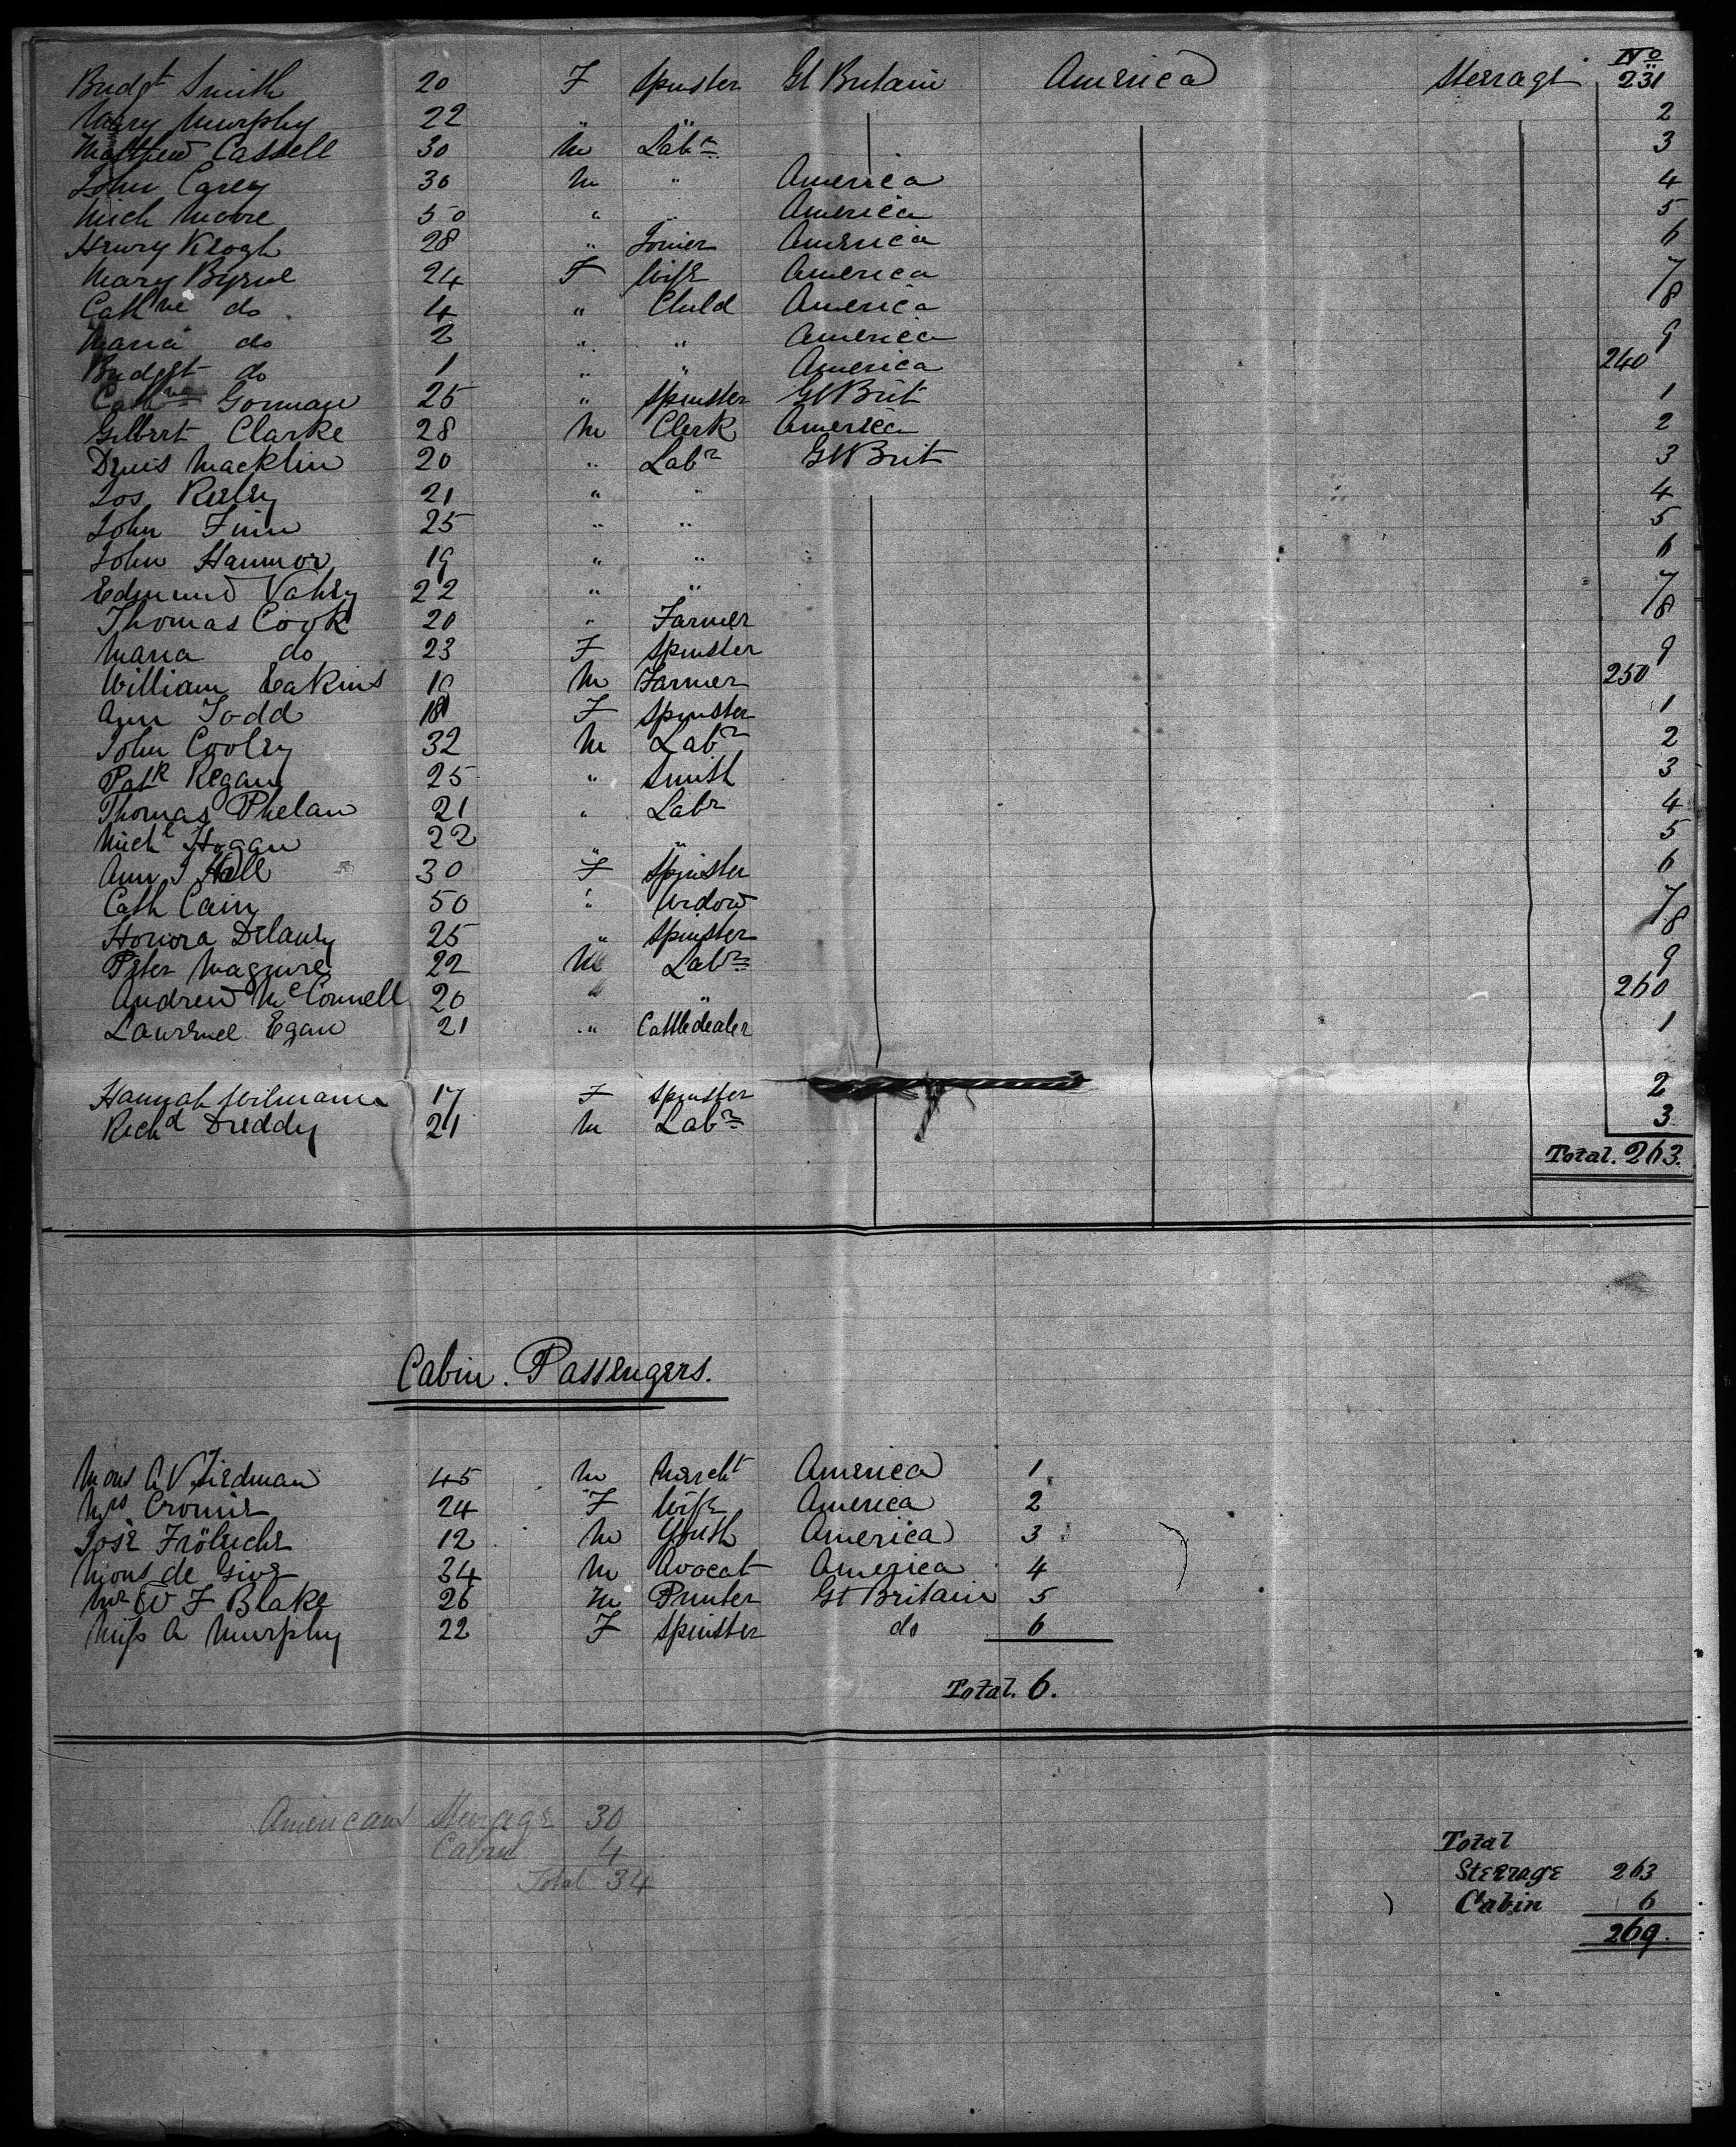 No
Bridgt Smith 20 F Spinster Gt Britain America Steerage 231
Mary Murphy 22 " " 2
Matthew Cassell 30 M Labr 3
John Carey 30 M " America 4
Mich Moore 50 " " America 5
Henry Keogh 28 " Joiner America 6
Mary Byrne 24 F Wife America 7
Cathne do 4 " Child America 8
Maria do 2 " " America 9
Bridget do 1 " " America 240
Cathne Gorman 25 " Spinster Gt Brit 1
Gilbert Clarke 28 M Clerk America 2
Denis Macklin 20 " Labr Gt Brit 3
Jos Reiley 21 " " 4
John Finn 25 " " 5
John Hannor 19 " " 6
Edmund Vahey 22 " " 7
Thomas Cook 20 " Farmer 8
Maria do 23 F Spinster 9
William Eakins M Farmer 250
Ann Todd 18 F Spinster 1
John Cooley 32 M Labr 2
Patk Regan 25 " Smith 3
Thomas Phelan 21 " Labr 4
Michl Hogan 22 " " 5
Ann J Hall 30 F Spinster 6
Cath Cain 50 " Widow 7
Honora Delaney 25 " Spinster 8
Peter Maguire 22 M Labr 9
Andrew McConnell 20 " " 260
Lawrence Egan 21 " Cattledealer 1
Hannah 17 F Spinster 2
Richd Dreddy 21 M Labr 3
Total. 263.
Cabin. Passengers.
Mons A V Tiedman 45 M Mercht America 1
Mrs Cromie 24 F Wife America 2
José 12 M Youth America 3
Mons de Give 34 M Avocat America 4
Mr W F Blake 26 M Printer Gt Britain 5
Miss A Murphy 22 F Spinster do 6
Total. 6.
Americans Steerage 30
Cabin 4
Total 34
Total
Steerage 263
Cabin 6
269.